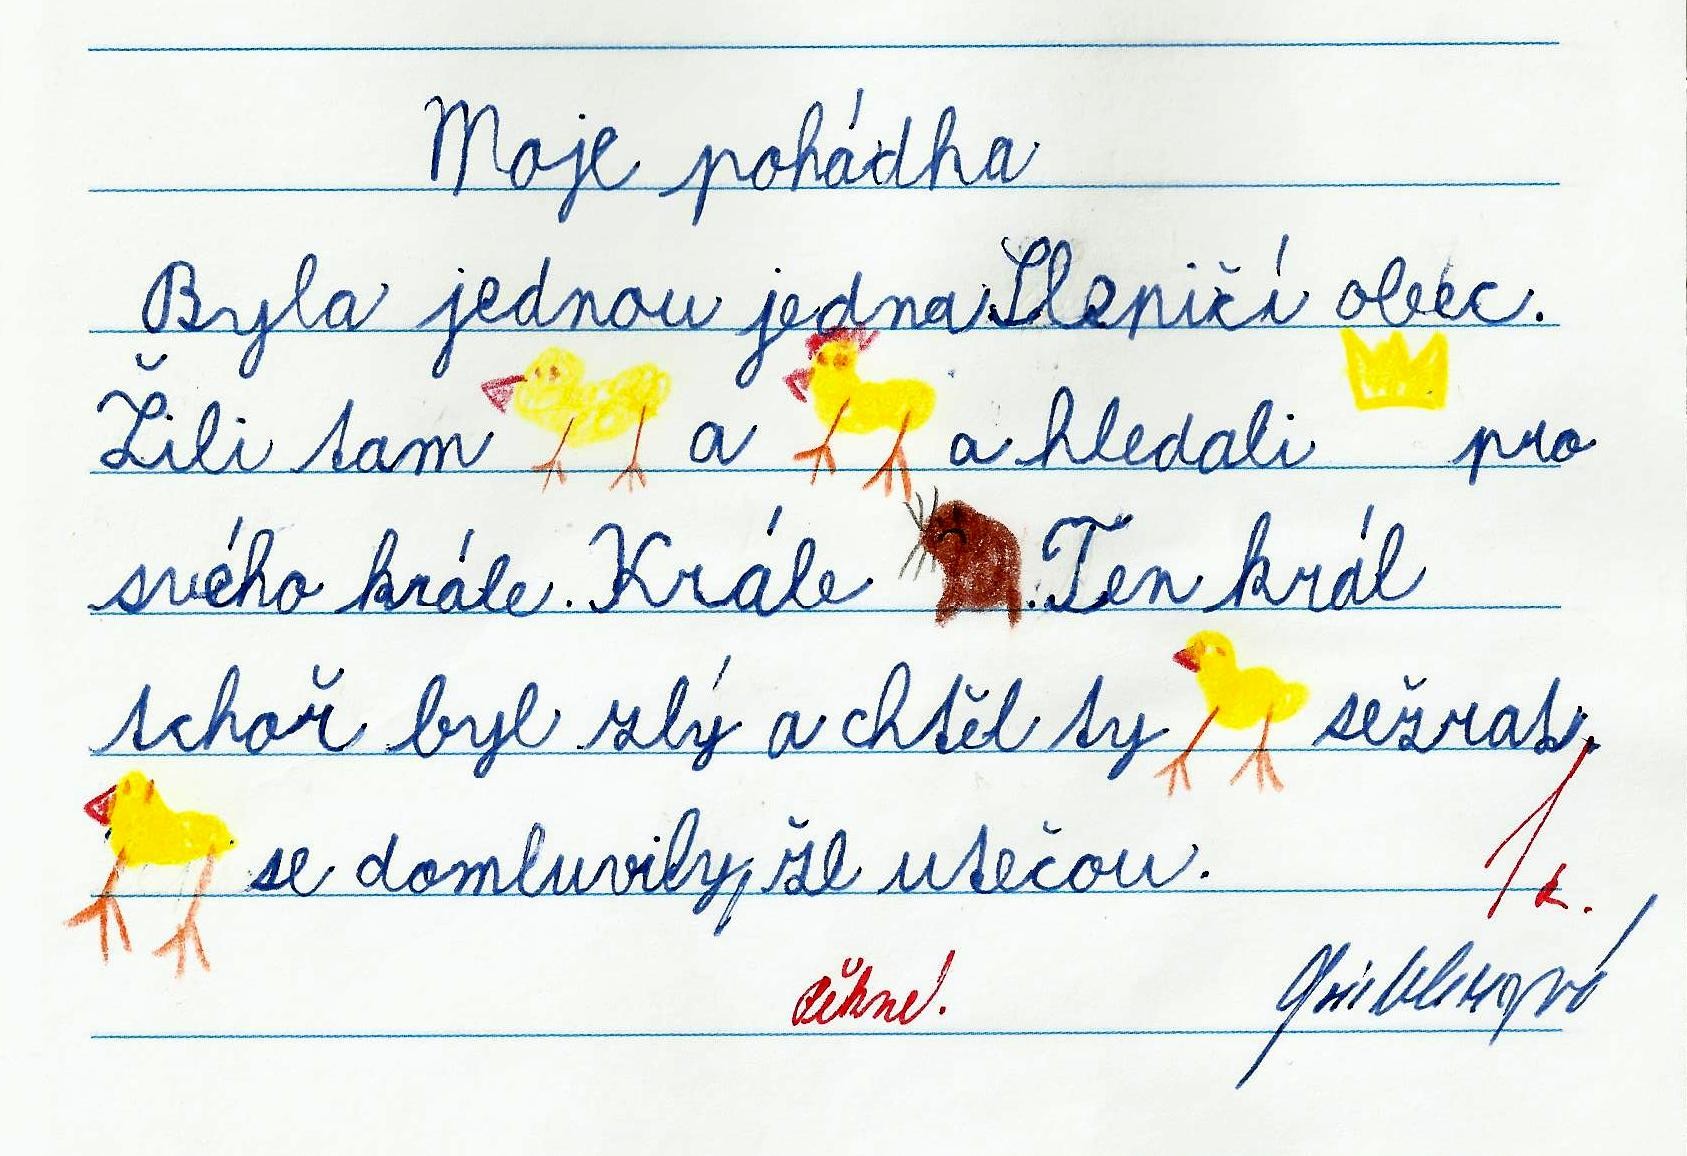 Moje pohádka
Byla jednou jedna Slepičí obec.
Žili tam a a hledali pro
svého krále. Krále . Ten král
tchoř byl zlý a chtěl ty sežrat.
se domluvily, že utečou.
1
pěkné.